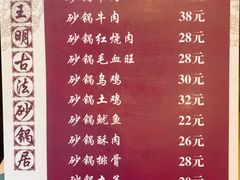 王明古法砂锅居
砂锅牛肉 38元
砂锅红烧肉 28元
砂锅毛血旺 28元
砂锅乌鸡 30元
砂锅土鸡 32元
砂锅鱿鱼 22元
砂锅酥肉 26元
砂锅排骨 28元